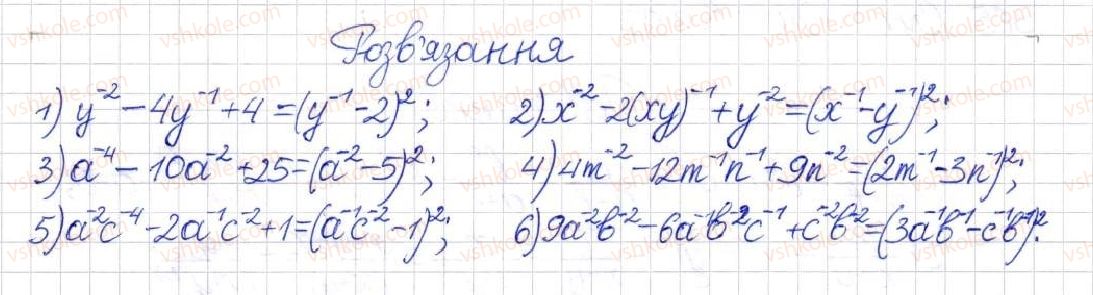 Розв'язання
1) y⁻² - 4y⁻¹ + 4 = (y⁻¹ - 2)²; 2) x⁻² - 2(xy)⁻¹ + y⁻² = (x⁻¹ - y⁻¹)²;
3) a⁻⁴ - 10a⁻² + 25 = (a⁻² - 5)²; 4) 4m⁻² - 12m⁻¹n⁻¹ + 9n⁻² = (2m⁻¹ - 3n⁻¹)²;
5) a⁻²c⁻⁴ - 2a⁻¹c⁻² + 1 = (a⁻¹c⁻² - 1)²; 6) 9a⁻²b⁻² - 6a⁻¹b⁻²c⁻¹ + c⁻²b⁻² = (3a⁻¹b⁻¹ - c⁻¹b⁻¹)².
vshkole.com